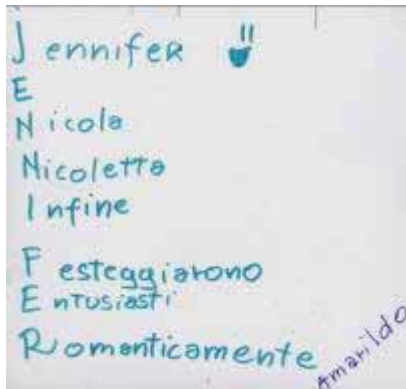 Jennifer
E
Nicola
Nicoletta
Infine
Festeggiarono
Entusiasti
Romanticamente
Amarildo